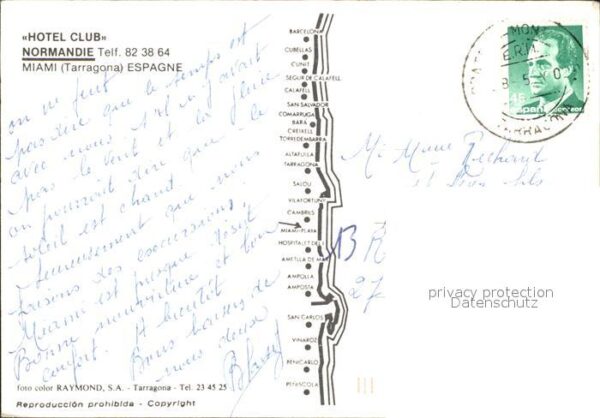 «HOTEL CLUB»
NORMANDIE Telf. 82 38 64
MIAMI (Tarragona) ESPAGNE
on ne peut
pas dire que le temps est
avec nous s'il n'y avait
pas le vent et la pluie
on pourrait dire que le
soleil est chaud.
Heureusement que nous
faisons des excursions,
Miami est presque
Bonne nourriture et bon
confort. A bientôt
Bons baisers de
nous deux
foto color RAYMOND, S.A. - Tarragona - Tel. 23 45 25
Reproducción prohibida - Copyright
BARCELONA
CUBELLAS
CUNIT
SEGUR DE CALAFELL
CALAFELL
SAN SALVADOR
COMARRUGA
BARÁ
CREIXELL
TORREDEMBARRA
ALTAFULLA
TARRAGONA
SALOU
VILAFORTUNY
CAMBRILS
MIAMI-PLAYA
HOSPITALET DEL I.
AMETLLA DE MAR
AMPOLLA
AMPOSTA
SAN CARLOS
VINAROZ
BENICARLO
PEÑISCOLA
45
España
CORREOS
et son fils
27
privacy protection
Datenschutz